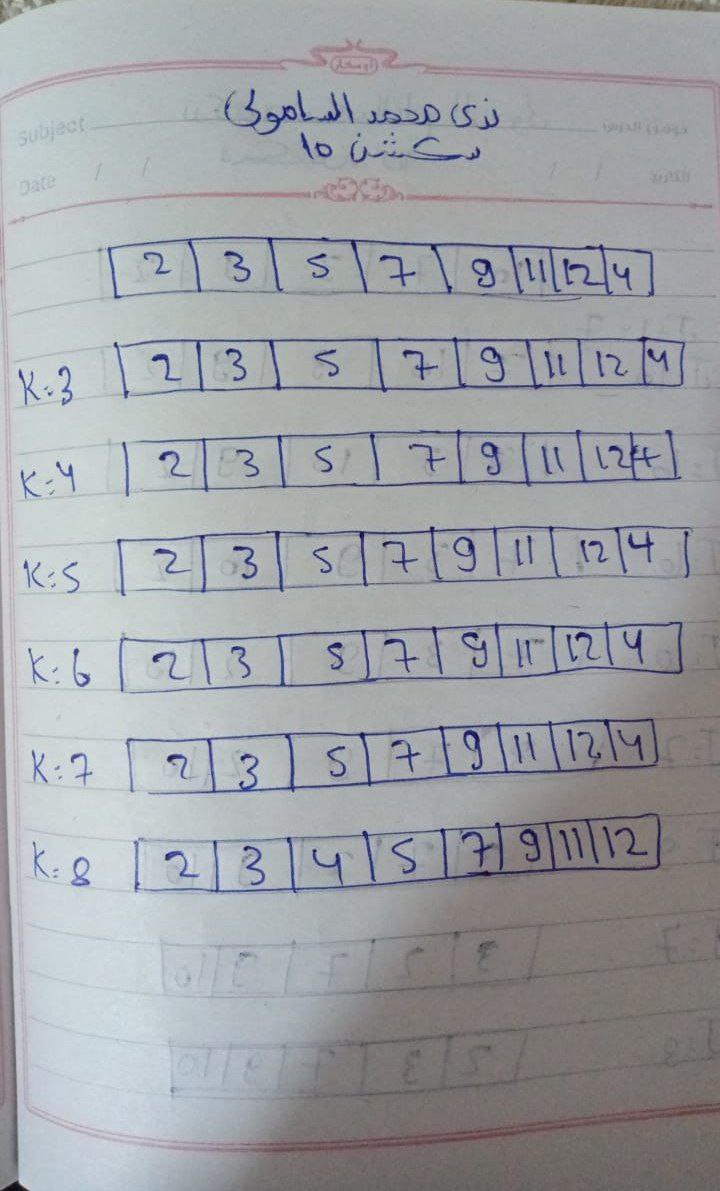 Subject
Date / /
محمد السامولى
سكشن 10
2 3 5 7 9 11 12 4
K=3 2 3 5 7 9 11 12 4
K=4 2 3 5 7 9 11 12 4
K=5 2 3 5 7 9 11 12 4
K=6 2 3 5 7 9 11 12 4
K=7 2 3 5 7 9 11 12 4
K=8 2 3 4 5 7 9 11 12